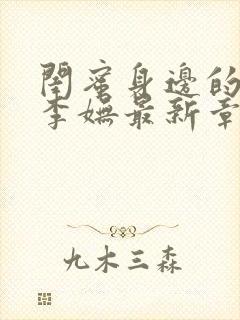 閨蜜身邊的
李嫵最新章
九木三森